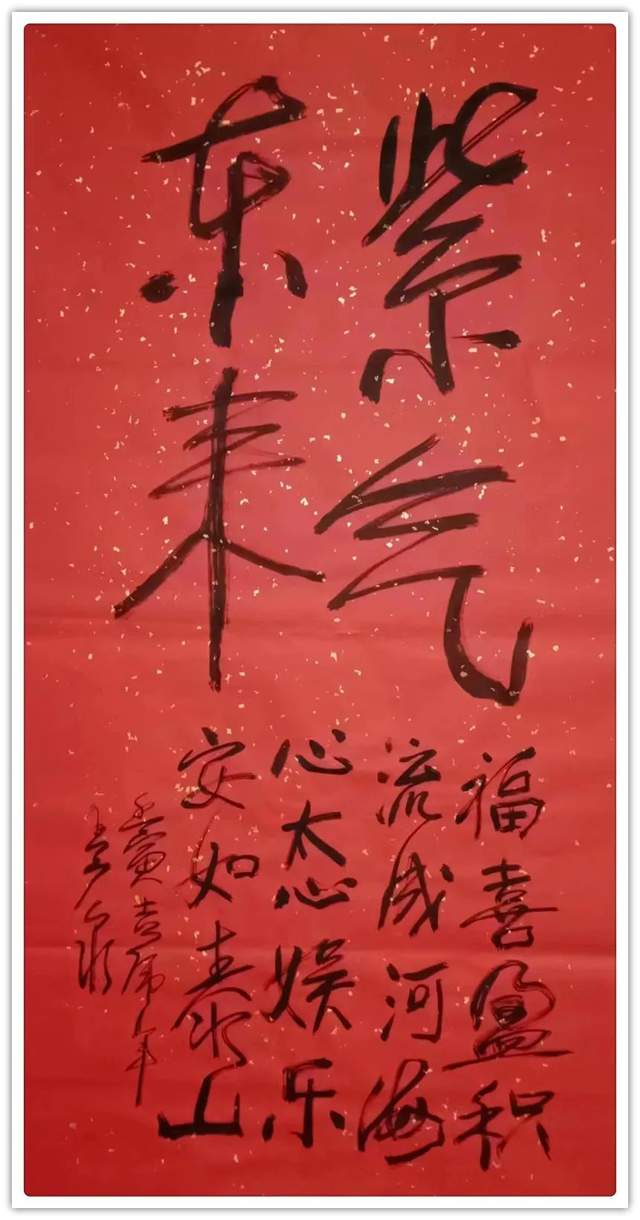 紫气
东来
福喜盈积
流成河海
心态娱乐
安如泰山
壬寅吉虎年